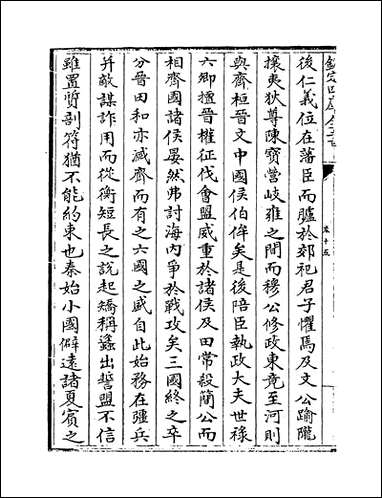 欽定四庫全書
卷十五
後仁義位在藩臣而臚於郊祀君子懼焉及文公踰隴
攘夷狄尊陳寶營岐雍之間而穆公修政東竟至河則
與齊桓晉文中國侯伯侔矣是後陪臣執政大夫世祿
六卿擅晉權征伐會盟威重於諸侯及田常殺簡公而
相齊國諸侯晏然弗討海內爭於戰攻矣三國終之卒
分晉田和亦滅齊而有之六國之盛自此始務在彊兵
并敵謀詐用而從衡短長之說起矯稱蠭出誓盟不信
雖置質剖符猶不能約束也秦始小國僻遠諸夏賓之